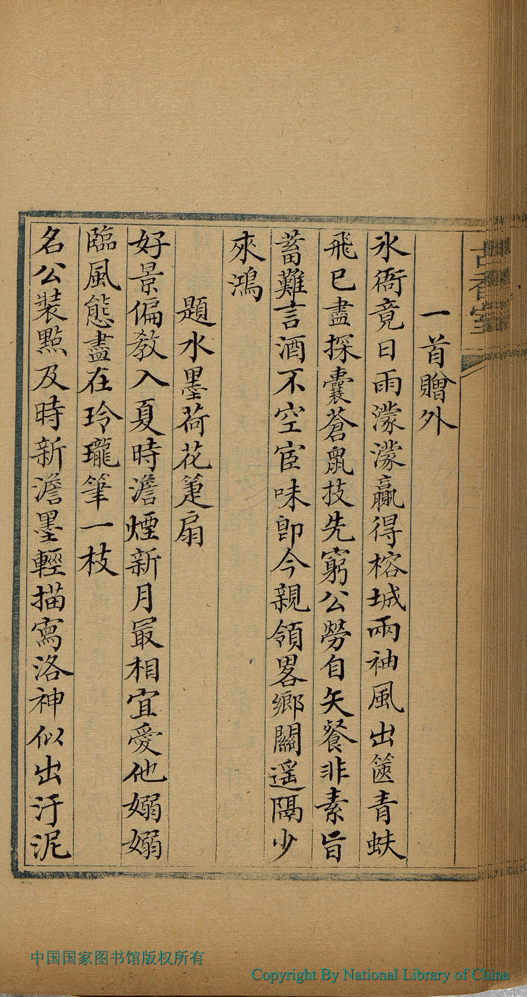 古香室
一首贈外
氷衙竟日雨濛濛贏得榕城兩袖風出篋青蚨
飛已盡探囊蒼鼠技先窮公勞自矢餐非素旨
蓄難言酒不空宦味卽今親領畧鄉關遥隔少
來鴻
題水墨荷花箑扇
好景偏教入夏時澹煙新月最相宜愛他嫋嫋
臨風態盡在玲瓏筆一枝
名公裝點及時新澹墨輕描寫洛神似出汙泥
中国国家图书馆版权所有
Copyright By National Library of China